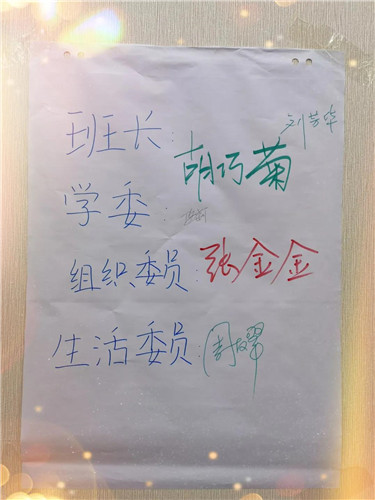 刘芳华
班长: 胡巧菊
学委:
组织委员: 张金金
生活委员: 周